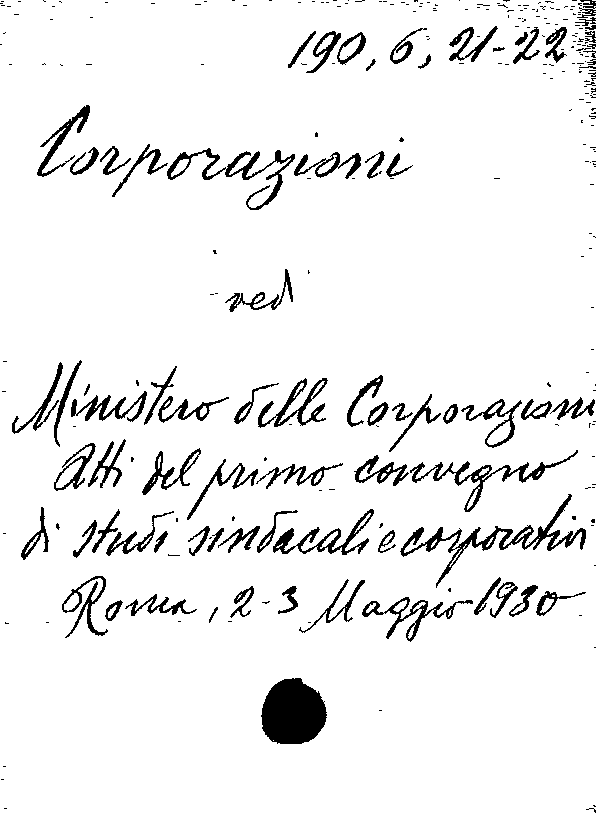 190, 6, 21-22
Corporazioni
vedi
Ministero delle Corporazioni
Atti del primo convegno
di studi sindacali e corporativi
Roma, 2-3 Maggio 1930